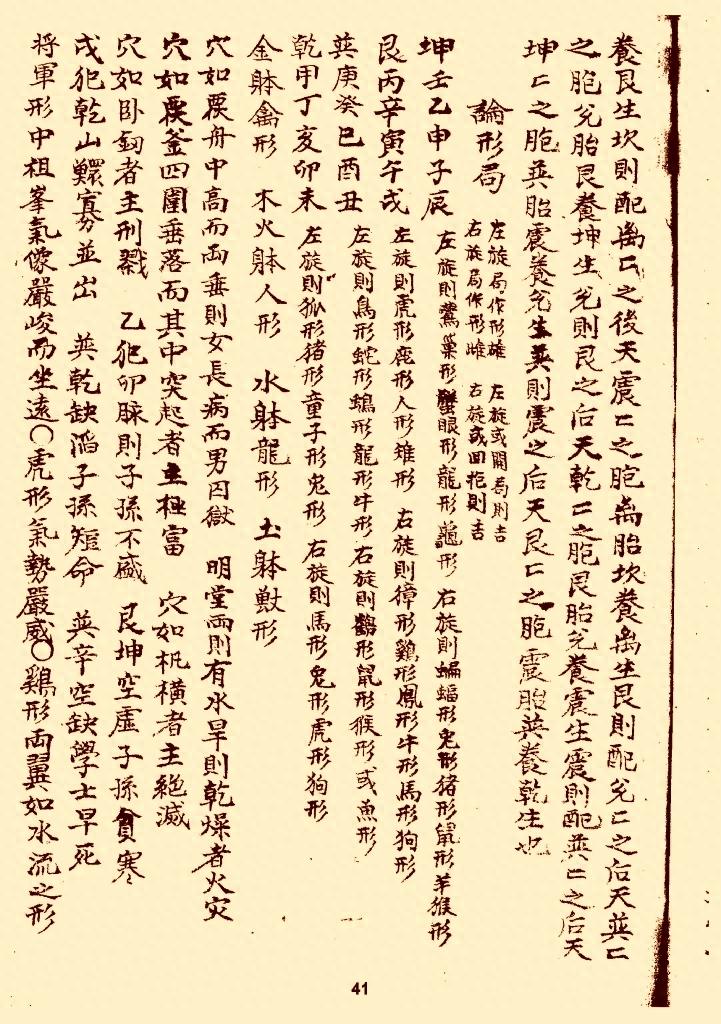 養艮生坎則配离亡之後天震亡之胞离胎坎養离生艮則配兌亡之后天巽亡
之胞兌胎艮養坤生兌則艮之后天乾亡之胞艮胎兌養震生震則配巽亡之后天
坤亡之胞巽胎震養兌生巽則震之后天艮亡之胞震胎巽養乾生也
論形局 左旋局作形雄 左旋或開局則吉
右旋局作形雌 右旋或回抱則吉
坤壬乙申子辰 左旋則鶯巢形蟹眼形龍形龜形 右旋則蝙蝠形兔形猪形鼠形羊猴形
艮丙辛寅午戌 左旋則虎形鹿形人形雉形 右旋則獐形鷄形鳳形牛形馬形狗形
巽庚癸巳酉丑 左旋則鳥形蛇形鵝形龍形牛形 右旋則鶴形鼠形猴形或魚形
乾甲丁亥卯未 左旋則狐形猪形童子形兔形 右旋則馬形兔形虎形狗形
金躰禽形 木火躰人形 水躰龍形 土躰獸形
穴如覆舟中高而兩垂則女長病而男囚獄 明堂雨則有水旱則乾燥者火灾
穴如覆釜四圍垂落而其中突起者主極富 穴如杌橫者主絶滅
穴如卧釰者主刑戮 乙犯卯脉則子孫不盛 艮坤空虛子孫貧寒
戌犯乾山鰥寡並出 巽乾缺滔子孫短命 巽辛空缺學士早死
將軍形中祖峯氣像嚴峻而坐遠○虎形氣勢嚴威○鷄形兩翼如水流之形
41